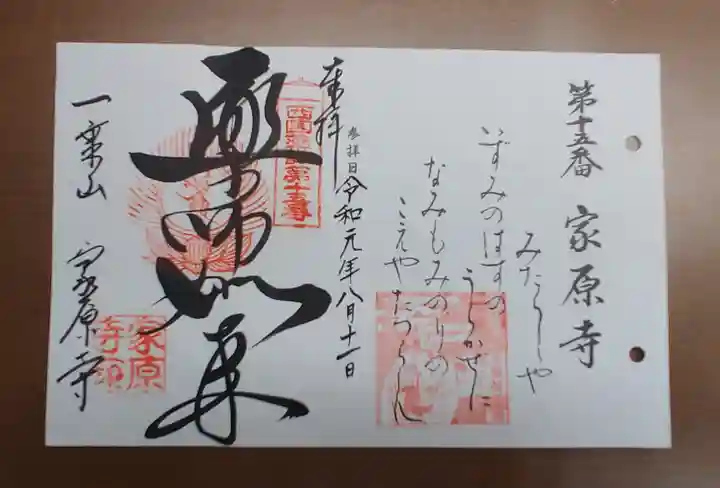 第十五番 家原寺
みたらしや
いずみのはすの
うらかぜに
なみもみのりの
こえやたつらん
奉拝
参拝日 令和元年八月十一日
西国薬師第十五番
薬師如来
一乗山 家原寺
家原寺印